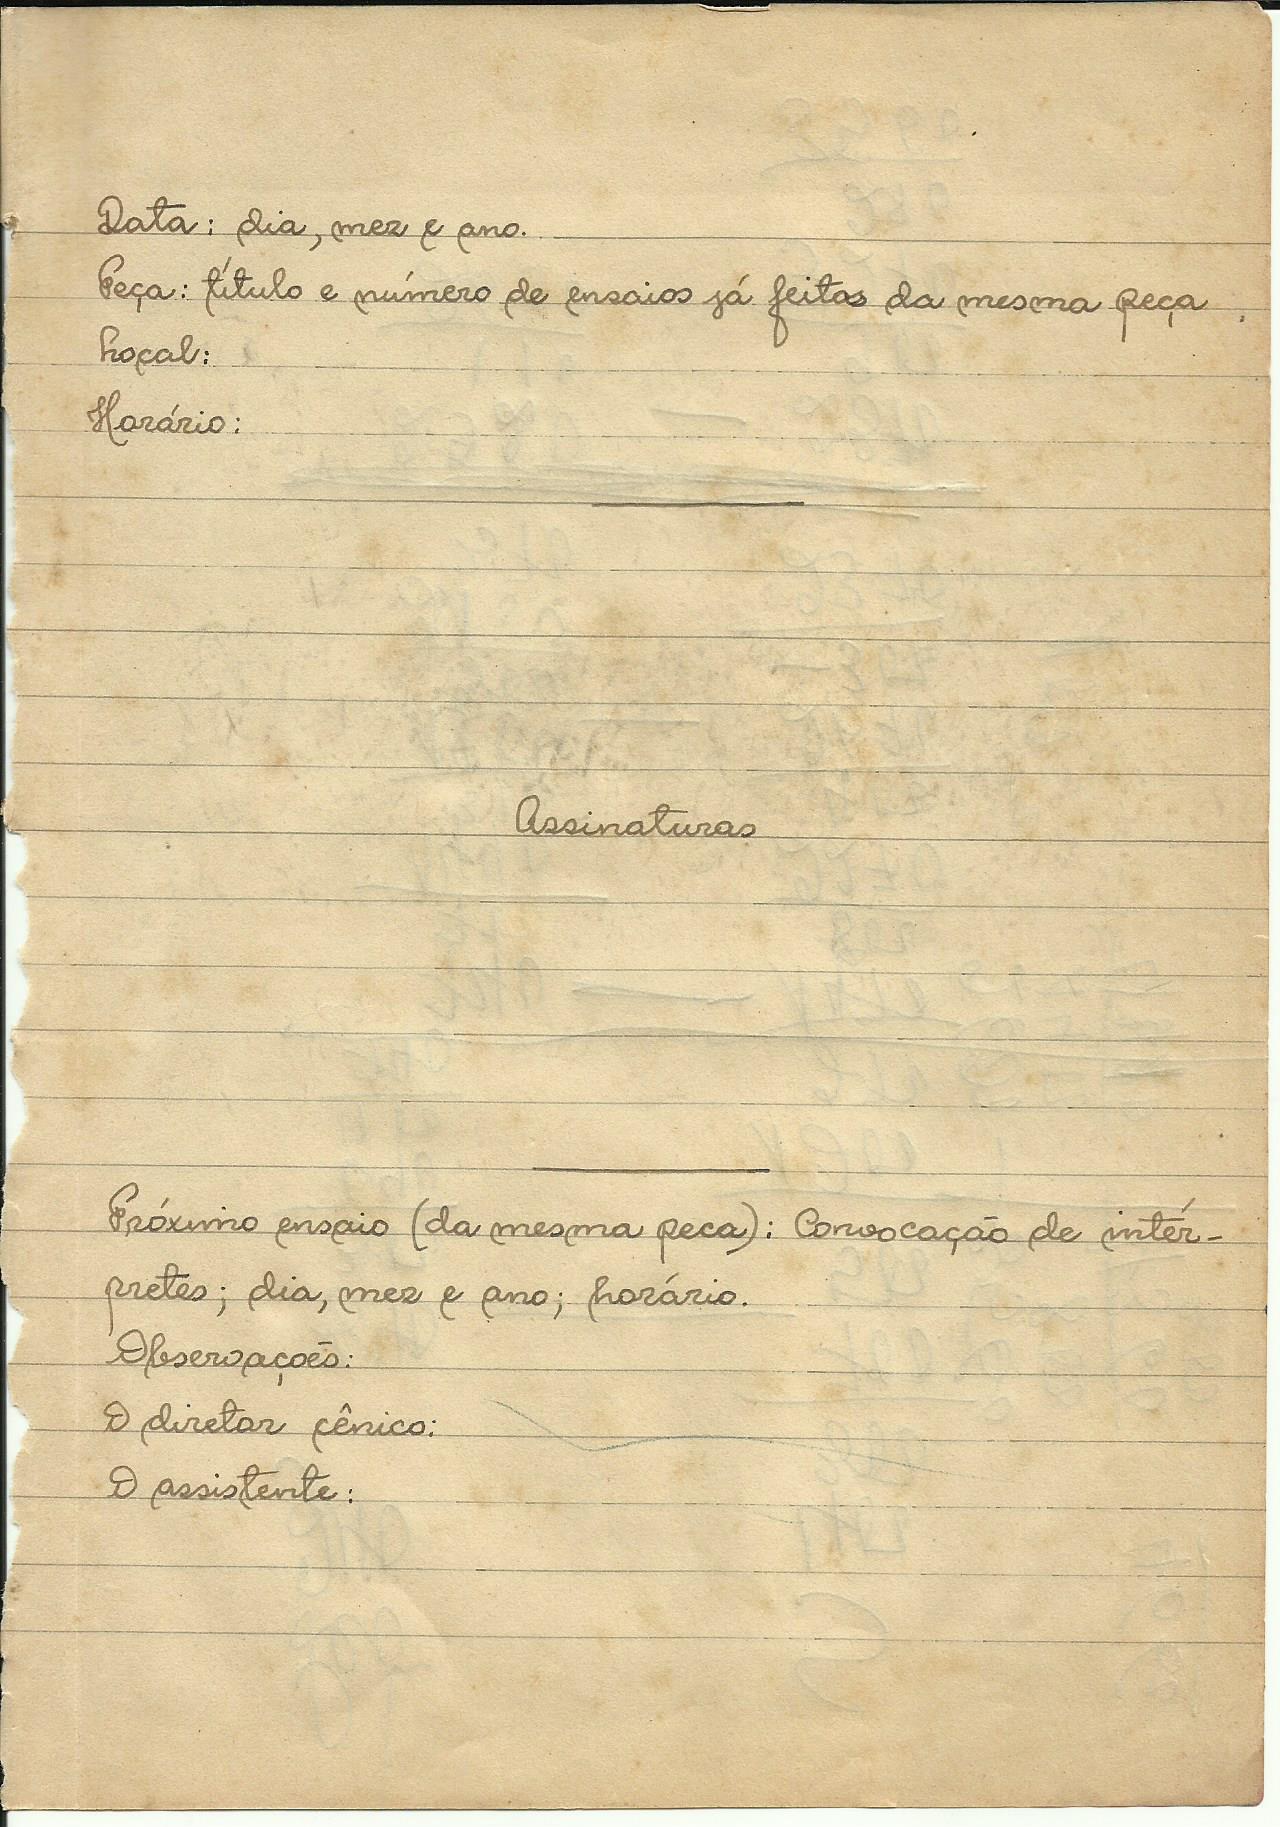 Data: dia, mez e ano.
Peça: título e número de ensaios já feitos da mesma peça.
Local:
Horário:
Assinaturas
Próximo ensaio (da mesma peca): Convocação de intér-
pretes; dia, mez e ano; horário.
Observações:
O diretor cênico:
O assistente: